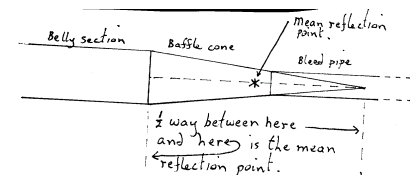 mean reflection
point.
Belly section
Baffle cone
Bleed pipe
½ way between here
and here is the mean
reflection point.